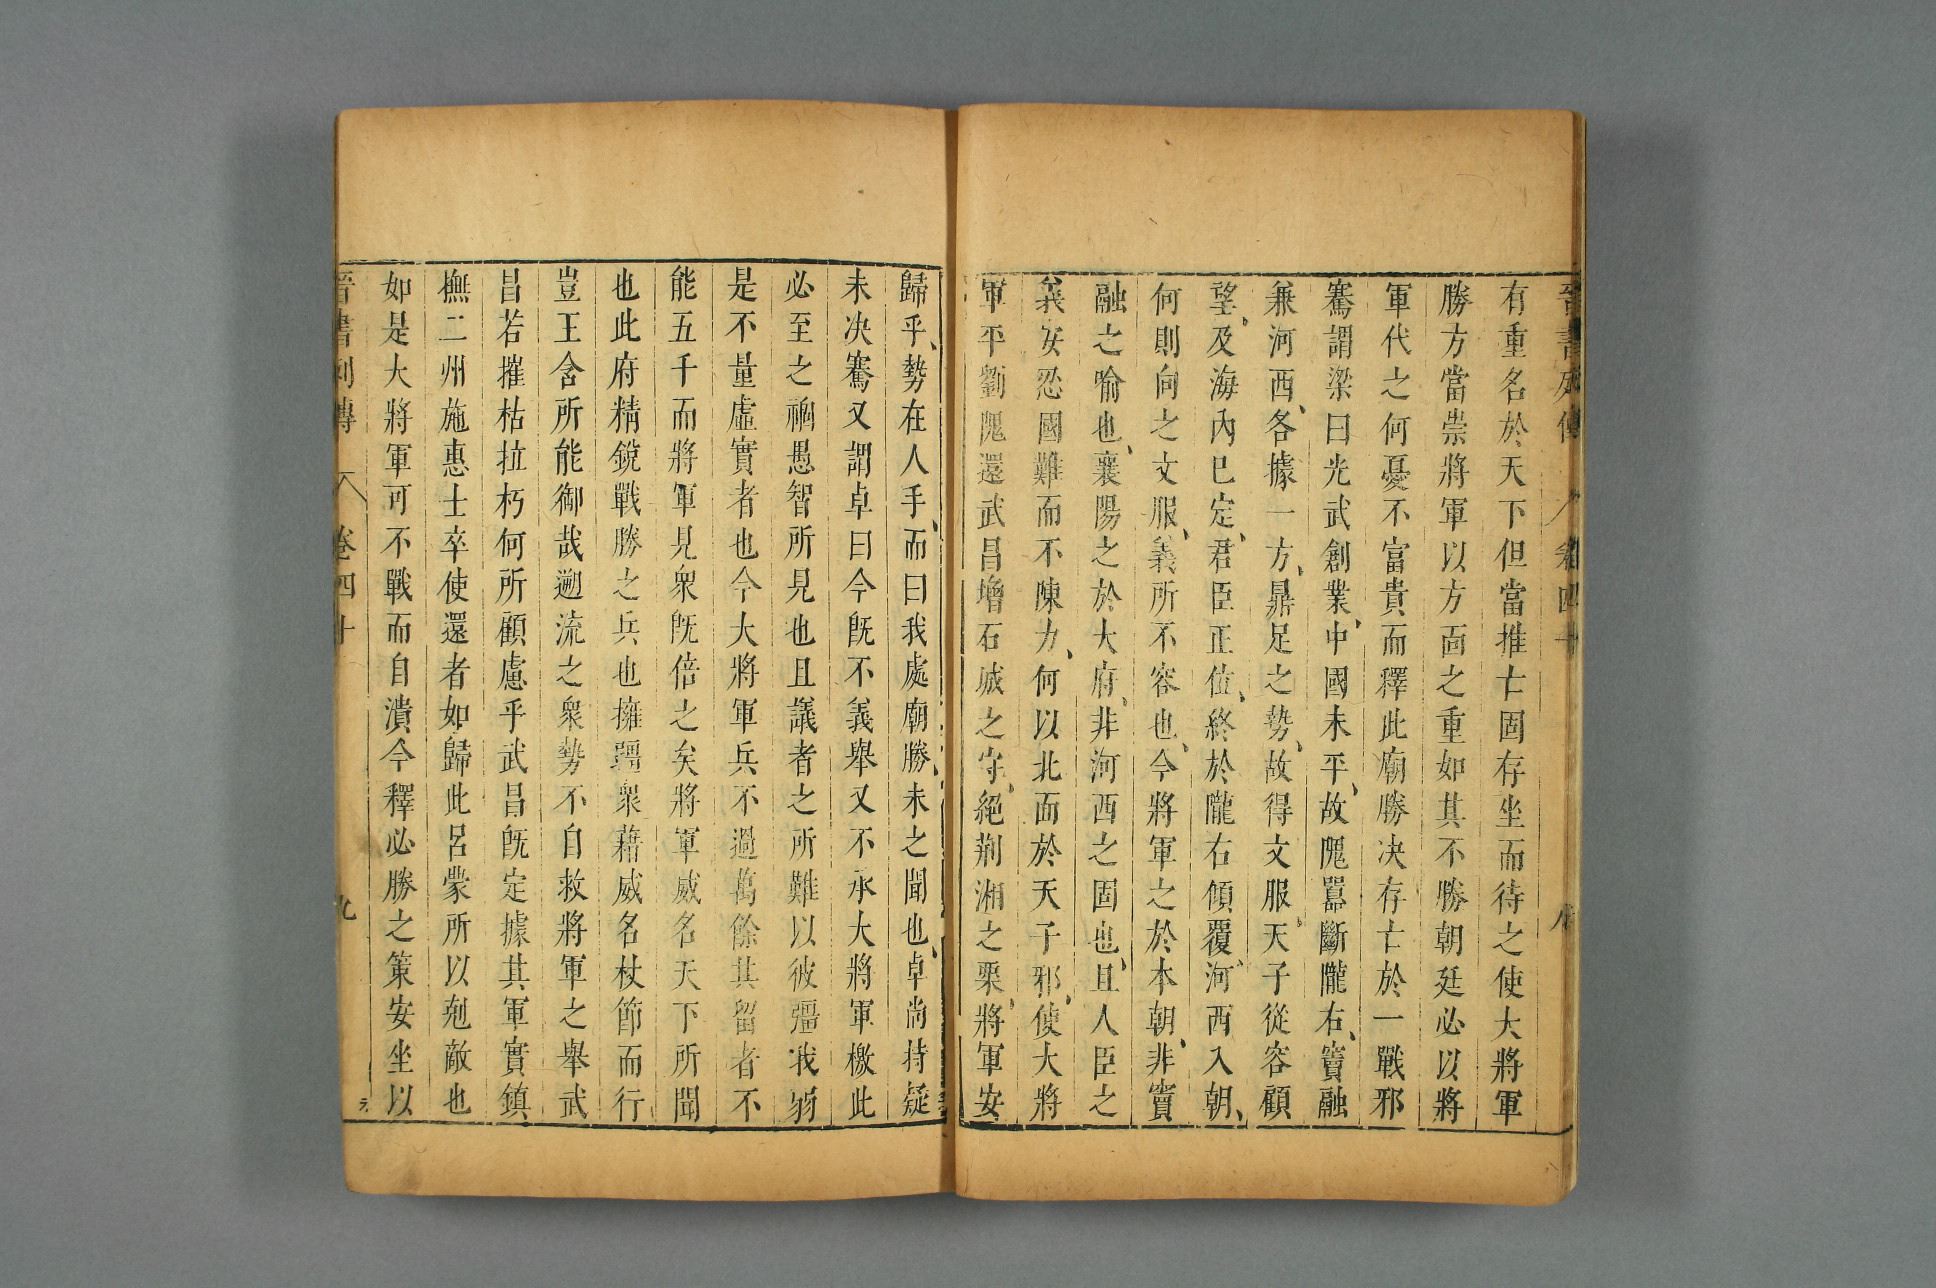 晉書列傳 卷四十 八
有重名於天下但當推亡固存坐而待之使大將軍
勝方當崇將軍以方面之重如其不勝朝廷必以將
軍代之何憂不富貴而釋此廟勝決存亡於一戰邪
騫謂梁曰光武創業、中國未平、故隗囂斷隴右、竇融
兼河西、各據一方、鼎足之勢、故得文服天子從容顧
望、及海內已定、君臣正位、終於隴右傾覆、河西入朝、
何則向之文服、義所不容也、今將軍之於本朝、非竇
融之喻也、襄陽之於大府、非河西之固也、且人臣之
義安忍國難而不陳力、何以北面於天子邪、使大將
軍平劉隗還武昌增石城之守、絕荊湘之粟、將軍安
歸乎、勢在人手、而曰我處廟勝、未之聞也、卓尚持疑
未決騫又謂卓曰今旣不義舉又不承大將軍檄此
必至之禍愚智所見也且議者之所難以彼彊我弱
是不量虛實者也今大將軍兵不過萬餘其留者不
能五千而將軍見衆旣倍之矣將軍威名天下所聞
也此府精銳戰勝之兵也擁彊衆藉威名杖節而行
豈王含所能御哉遡流之衆勢不自救將軍之舉武
昌若摧枯拉朽何所顧慮乎武昌旣定據其軍實鎮
撫二州施惠士卒使還者如歸此呂蒙所以剋敵也
如是大將軍可不戰而自潰今釋必勝之策安坐以
晉書列傳 卷四十 九